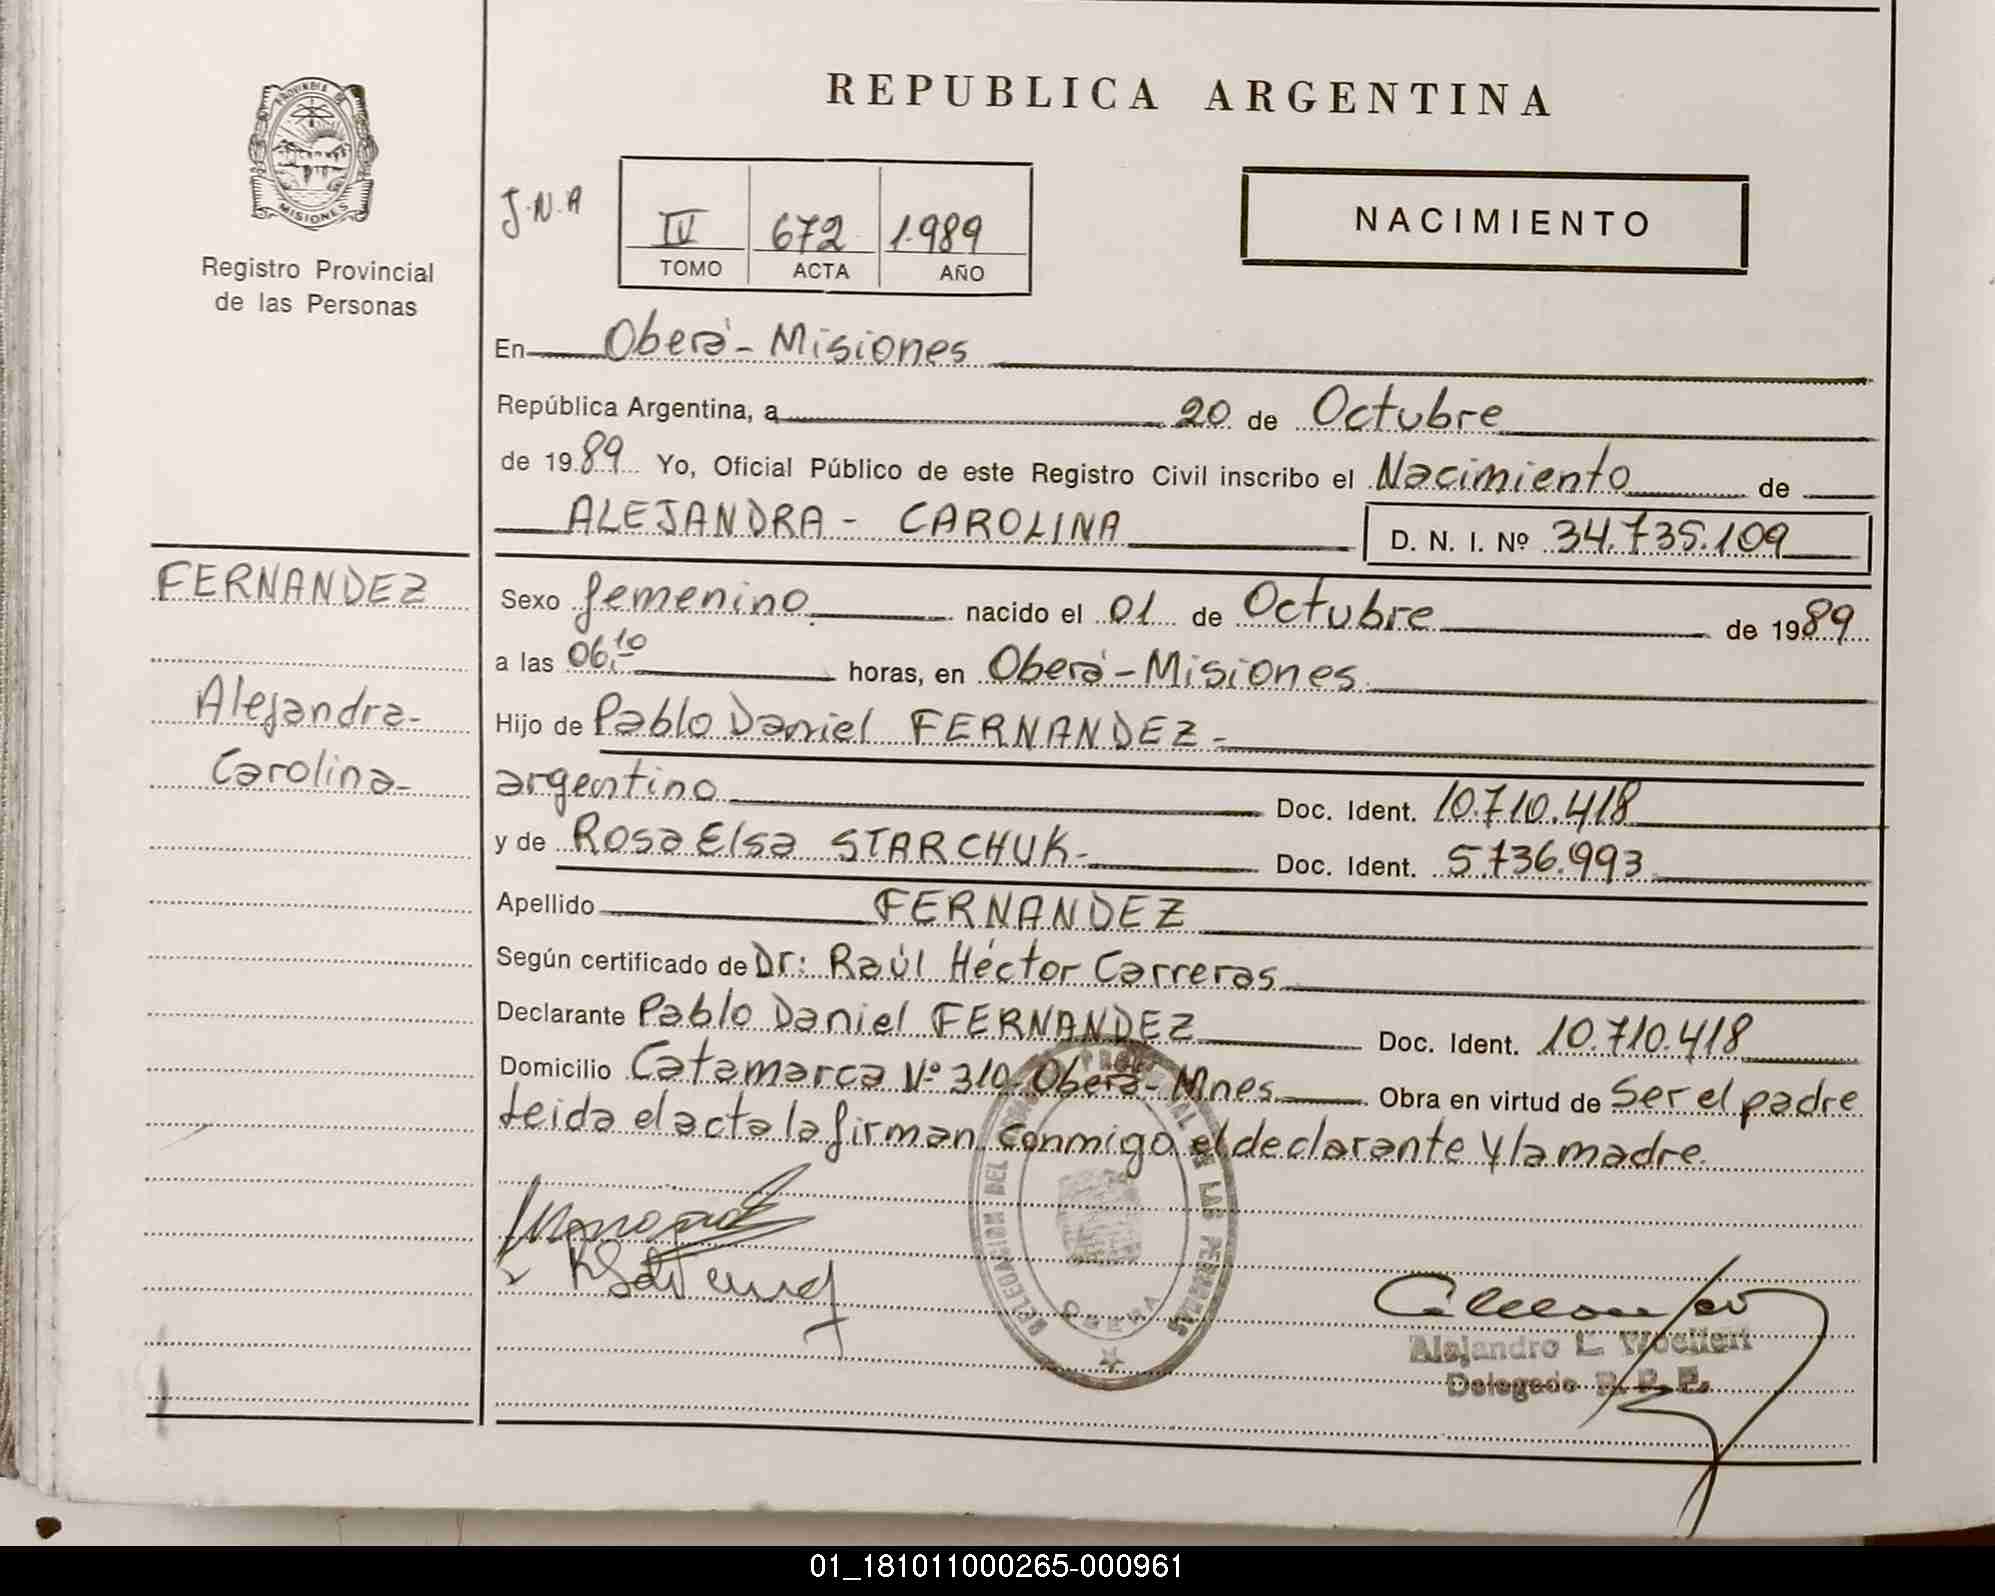 REPUBLICA ARGENTINA
PROVINCIA DE
MISIONES
Registro Provincial
de las Personas
J.N.A
IV 672 1.989
TOMO ACTA AÑO
NACIMIENTO
En Oberá - Misiones
República Argentina, a 20 de Octubre
de 1989 Yo, Oficial Público de este Registro Civil inscribo el Nacimiento de
ALEJANDRA - CAROLINA D. N. I. Nº 34.735.109
FERNANDEZ
Alejandra-
Carolina-
Sexo femenino nacido el 01 de Octubre de 1989
a las 06,10 horas, en Oberá - Misiones
Hijo de Pablo Daniel FERNANDEZ -
argentino Doc. Ident. 10.710.418
y de Rosa Elsa STARCHUK- Doc. Ident. 5.736.993
Apellido FERNANDEZ
Según certificado de Dr: Raúl Héctor Carreras
Declarante Pablo Daniel FERNANDEZ Doc. Ident. 10.710.418
Domicilio Catamarca Nº 310- Oberá - Mnes Obra en virtud de Ser el padre
Leida el acta la firman conmigo el declarante y la madre.
DELEGACION DEL PROVINCIAL DE LAS PERSONAS
OBERA
Alejandro L.
Delegado R. P. P.
01_181011000265-000961